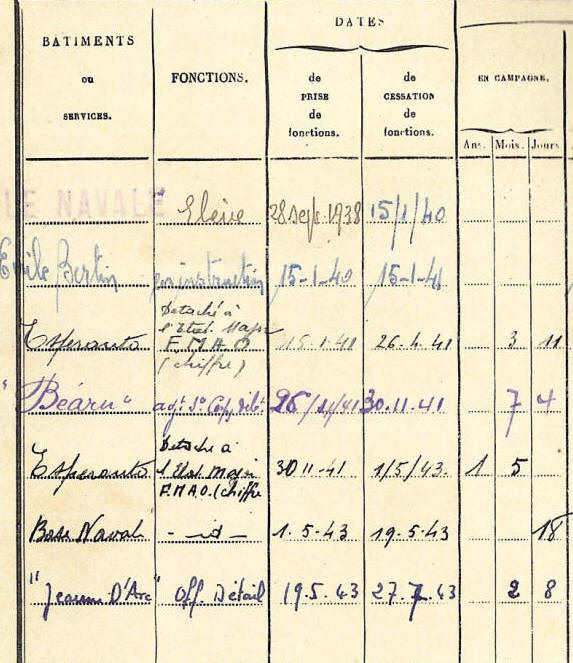 DATES
BATIMENTS
ou
SERVICES.
FONCTIONS.
de
PRISE
de
fonctions.
de
CESSATION
de
fonctions.
EN CAMPAGNE.
Ans. Mois. Jours
LE NAVALE Elève 28 sept. 1938 15/1/40
Emile Bertin en instruction 15-1-40 15-1-41
Détaché à
l'Etat. Major
Esperanto F.M.A.O 15-1-41 26.4.41 3 11
(chiffre)
"Béarn" 26/4/41 30.11.41 7 4
Détaché à
Esperanto l'Etat Major 30 11-41 1/5/43. 1 5
F.M.A.O. (chiffre
Base Navale - id - 1.5-43 19.5.43 18
"Jeanne D'Arc" Off. Détail 19.5.43 27.7.43 2 8